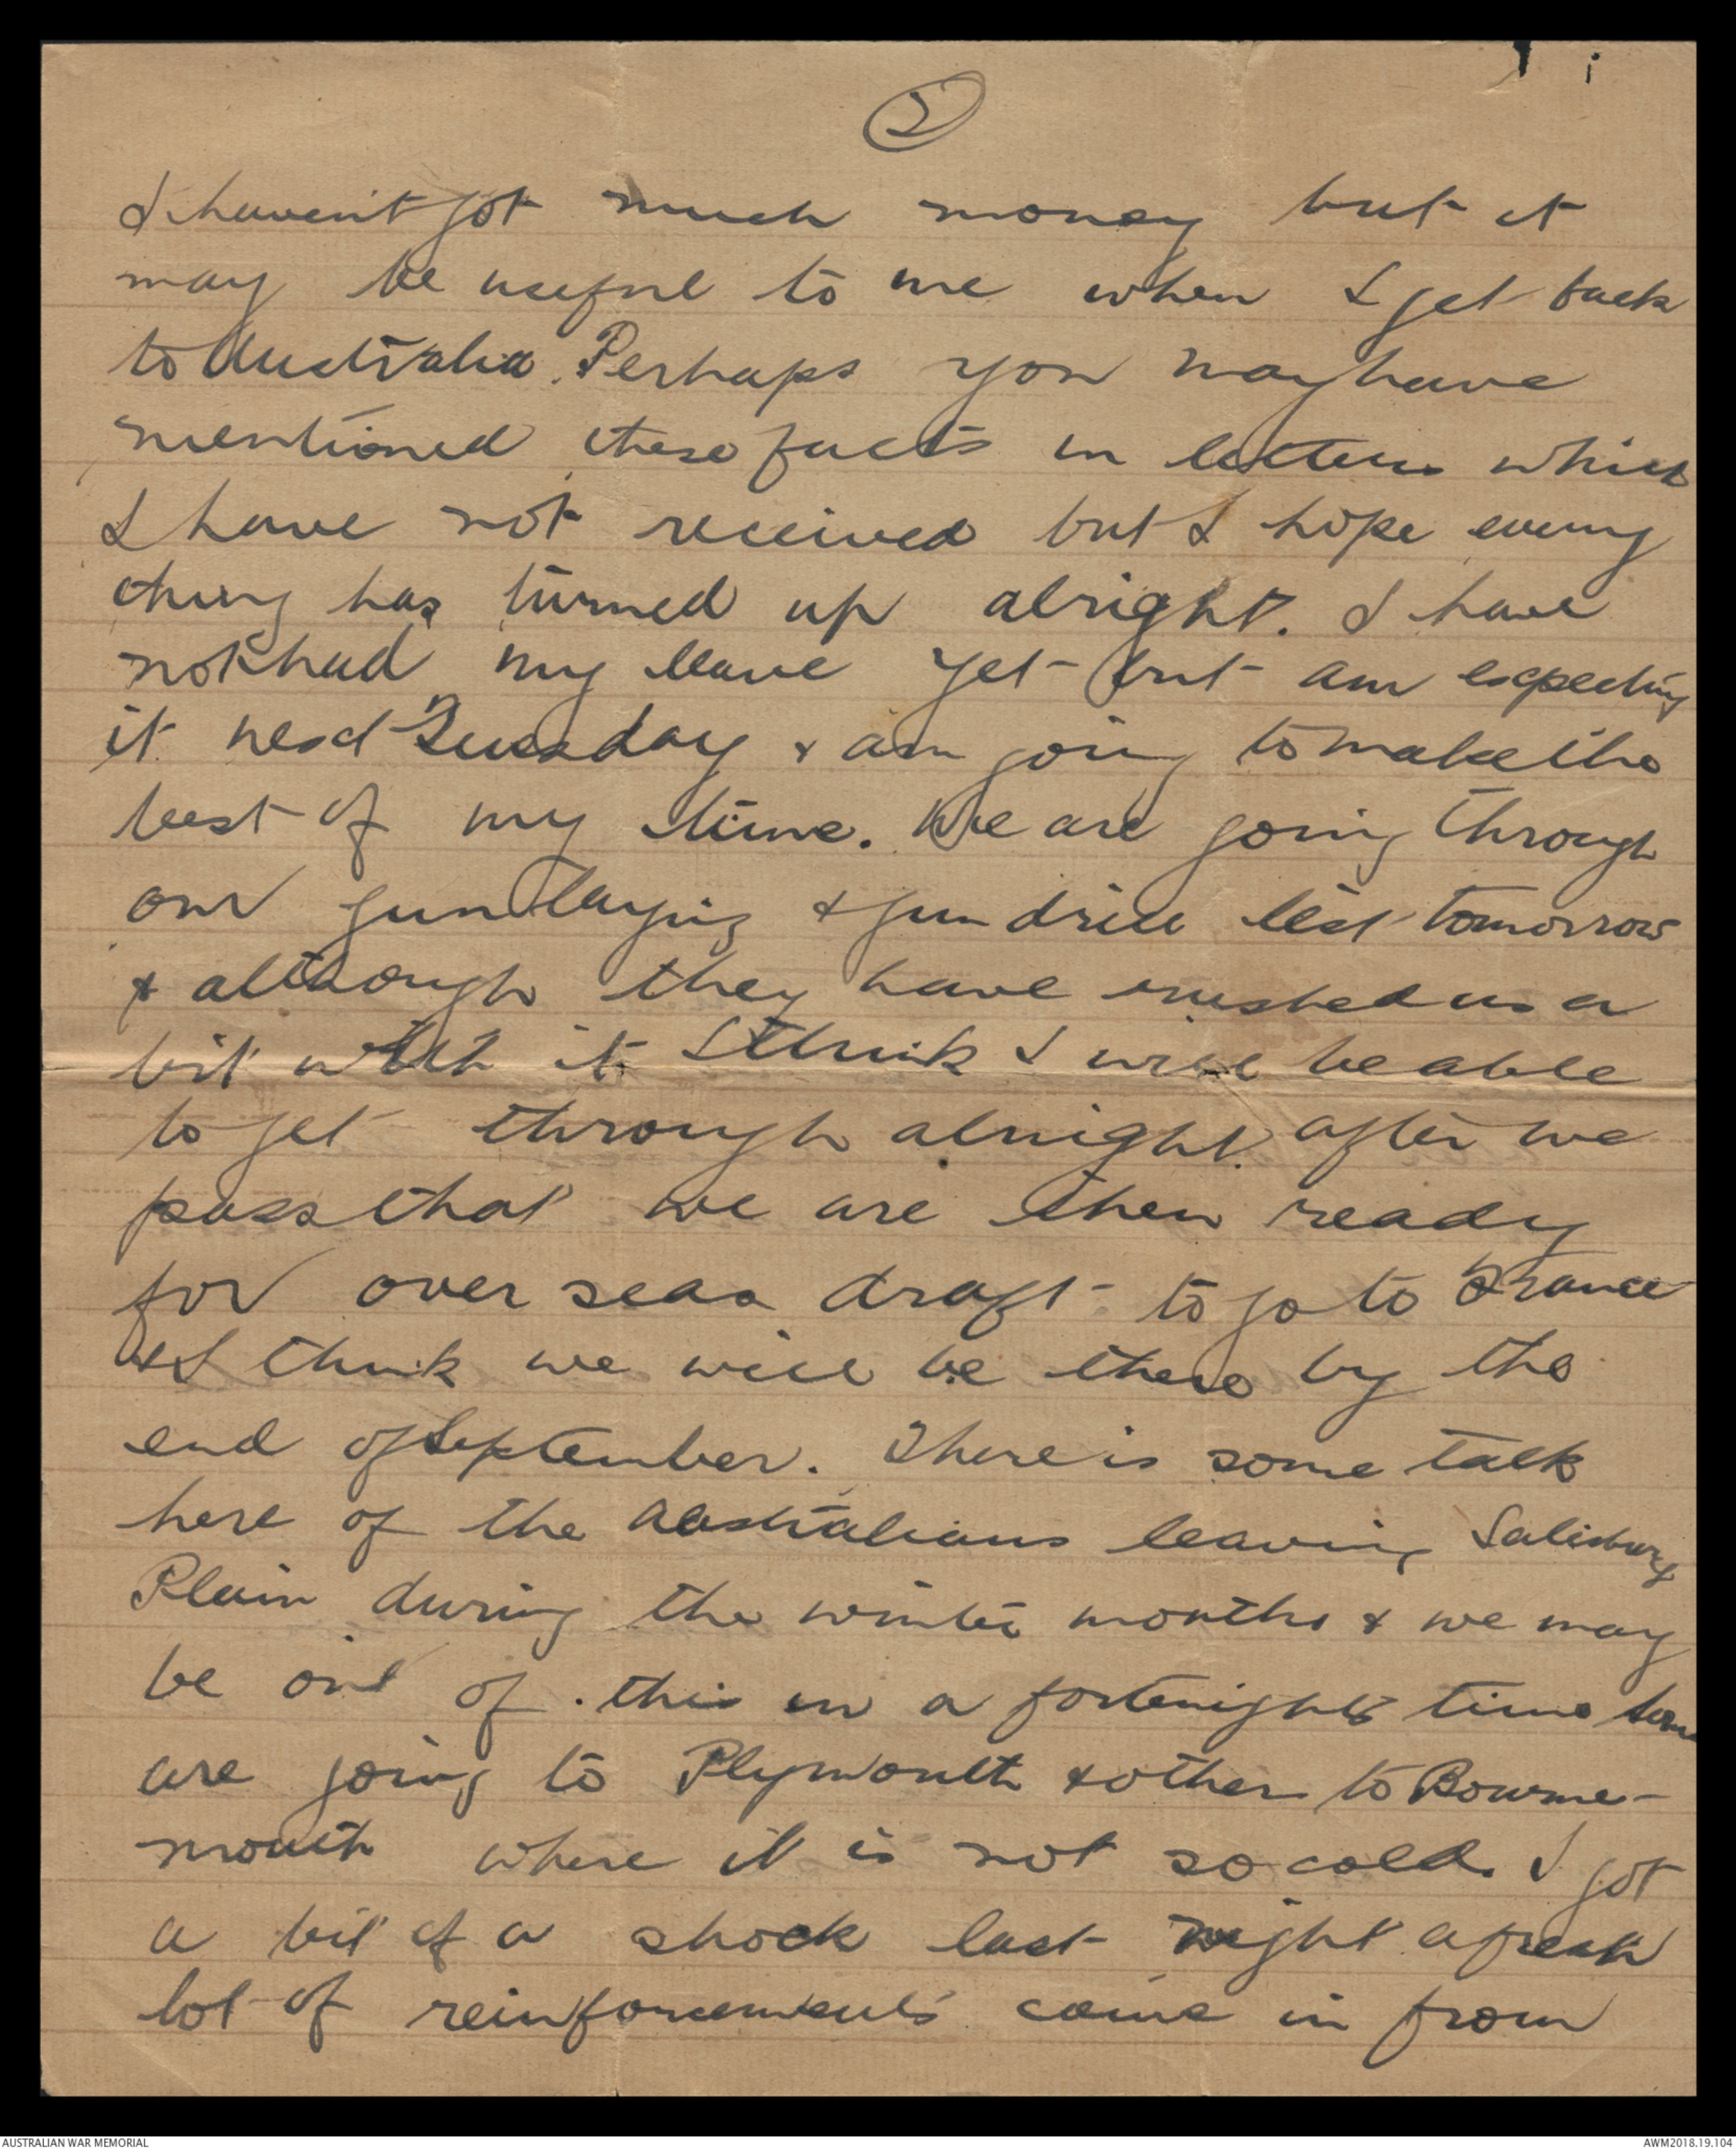 2
I haven't got much money but it
may be useful to me when I get back
to Australia. Perhaps you may have
mentioned these facts in letters which
I have not received but I hope every
thing has turned up alright. I have
not had my leave yet but am expecting
it next Tuesday & am going to make the
best of my time. We are going through
our gun laying & gun drill test tomorrow
& although they have rushed us a
bit with it I think I will be able
to get through alright. after we
pass that we are then ready
for over seas draft to go to France
& I think we will be there by the
end of September. There is some talk
here of the Australians leaving Salisbury
Plain during the winter months & we may
be out of this in a fortnights time some
are going to Plymouth & other to Bourne-
mouth where it is not so cold. I got
a bit of a shock last night a fresh
lot of reinforcements came in from
AUSTRALIAN WAR MEMORIAL
AWM2018.19.104